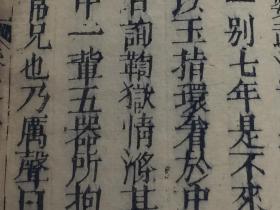 一別七年是不來
以玉指環着於中
詢鞫獄情滌其
中一輩五器所拘
兄也乃厲聲曰